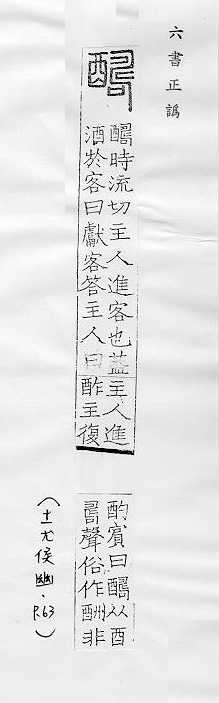 六書正譌
醻
醻時流切主人進客也葢主人進
酒於客曰獻客答主人曰酢主復
酌賓曰醻从酉
聲俗作酬非
尤侯幽·P.63)